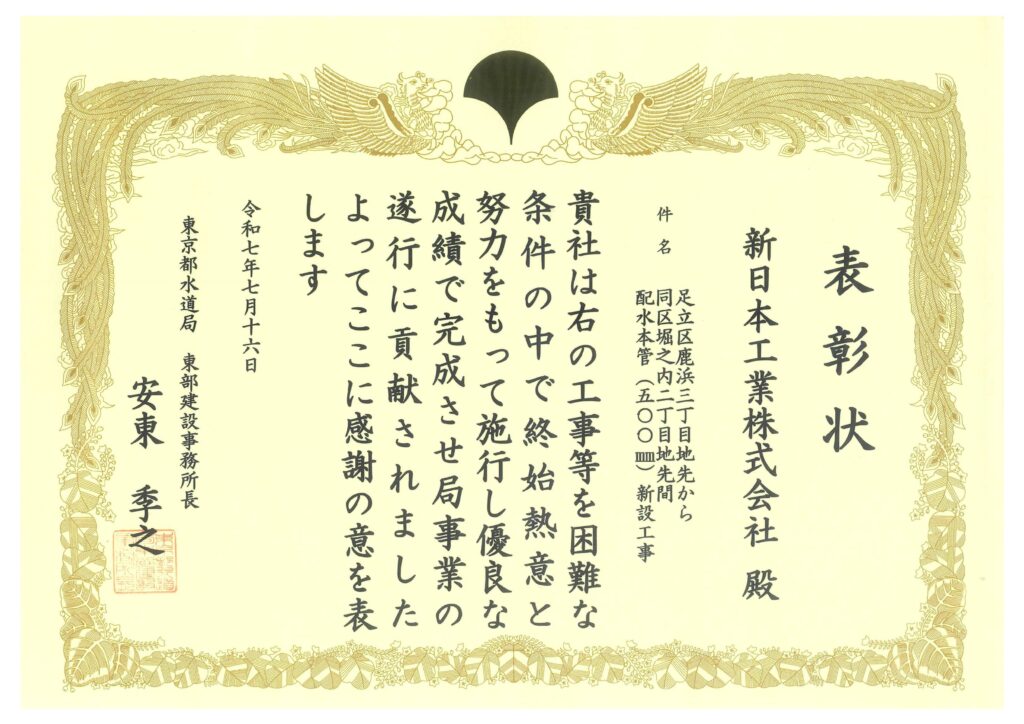 表彰状
新日本工業株式会社 殿
件名
足立区鹿浜三丁目地先から
同区堀之内二丁目地先間
配水本管（五〇〇㎜）新設工事
貴社は右の工事等を困難な
条件の中で終始熱意と
努力をもって施行し優良な
成績で完成させ局事業の
遂行に貢献されました
よってここに感謝の意を表
します
令和七年七月十六日
東京都水道局 東部建設事務所長
安東 季之